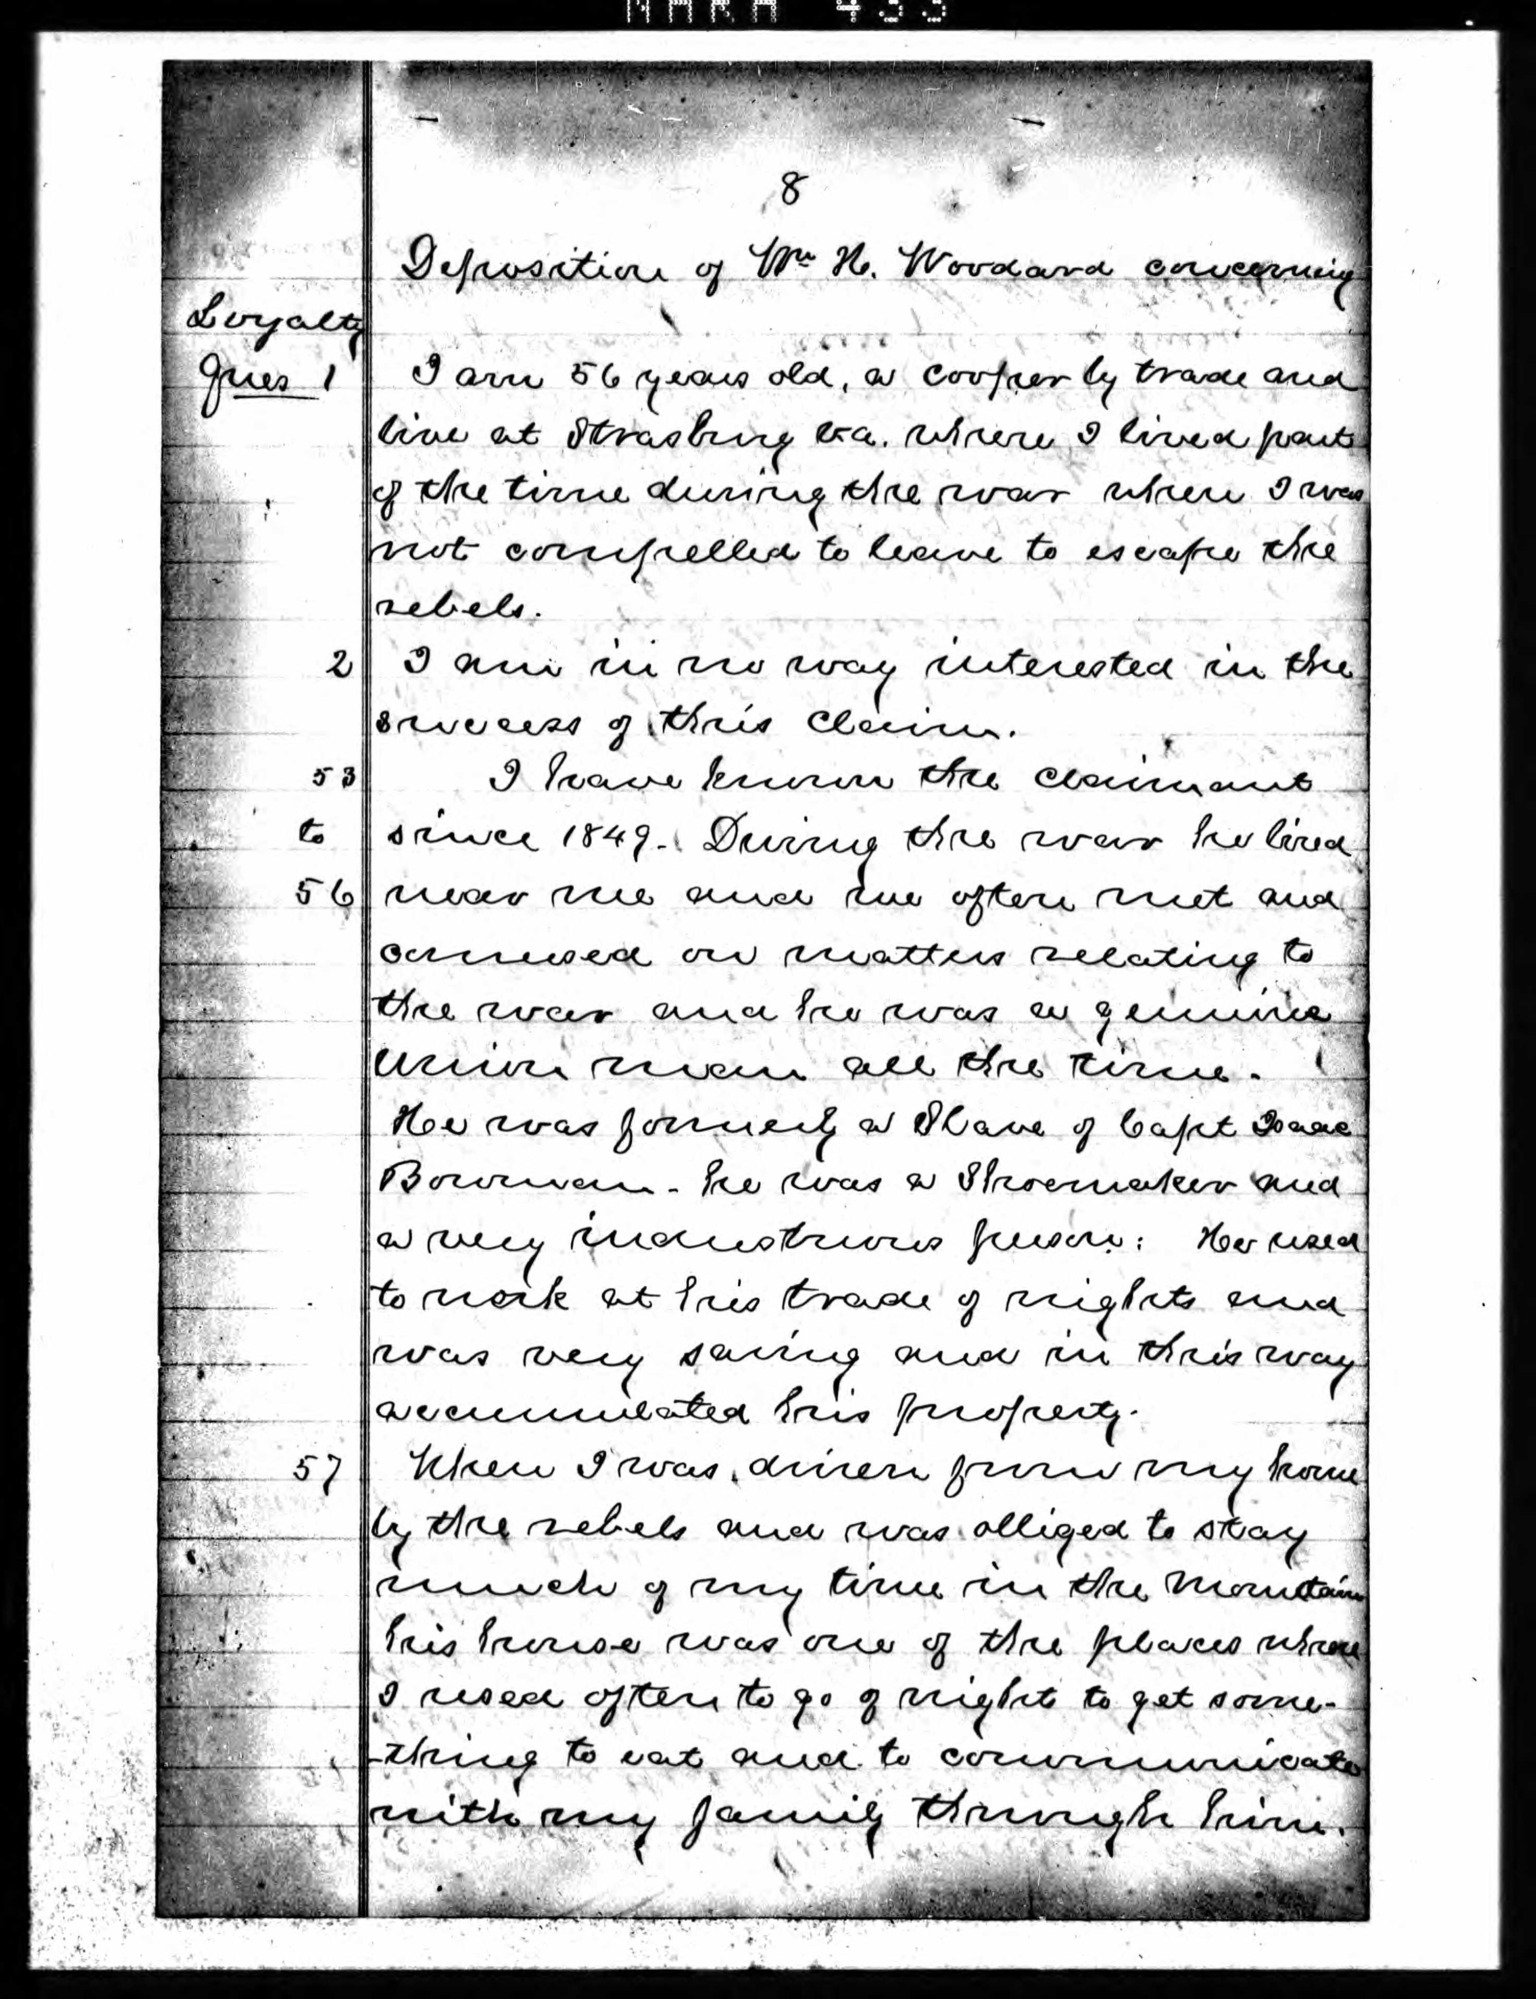 NARA 433
8
Deposition of Wm H. Woodard concerning
Loyalty
Ques 1 I am 56 years old, a cooper by trade and
live at Strasburg Va. where I lived part
of the time during the war when I was
not compelled to leave to escape the
rebels.
2 I am in no way interested in the
success of this claim.
53 I have known the claimant
to since 1849. During the war he lived
56 near me and we often met and
conversed on matters relating to
the war and he was a genuine
Union man all the time.
He was formerly a Slave of Capt Isaac
Bowman - he was a Shoemaker and
a very industrious person: He used
to work at his trade of nights and
was very saving and in this way
accumulated his property.
57 When I was driven from my home
by the rebels and was obliged to stay
much of my time in the mountain
his house was one of the places where
I used often to go of nights to get some-
-thing to eat and to communicate
with my family through him.